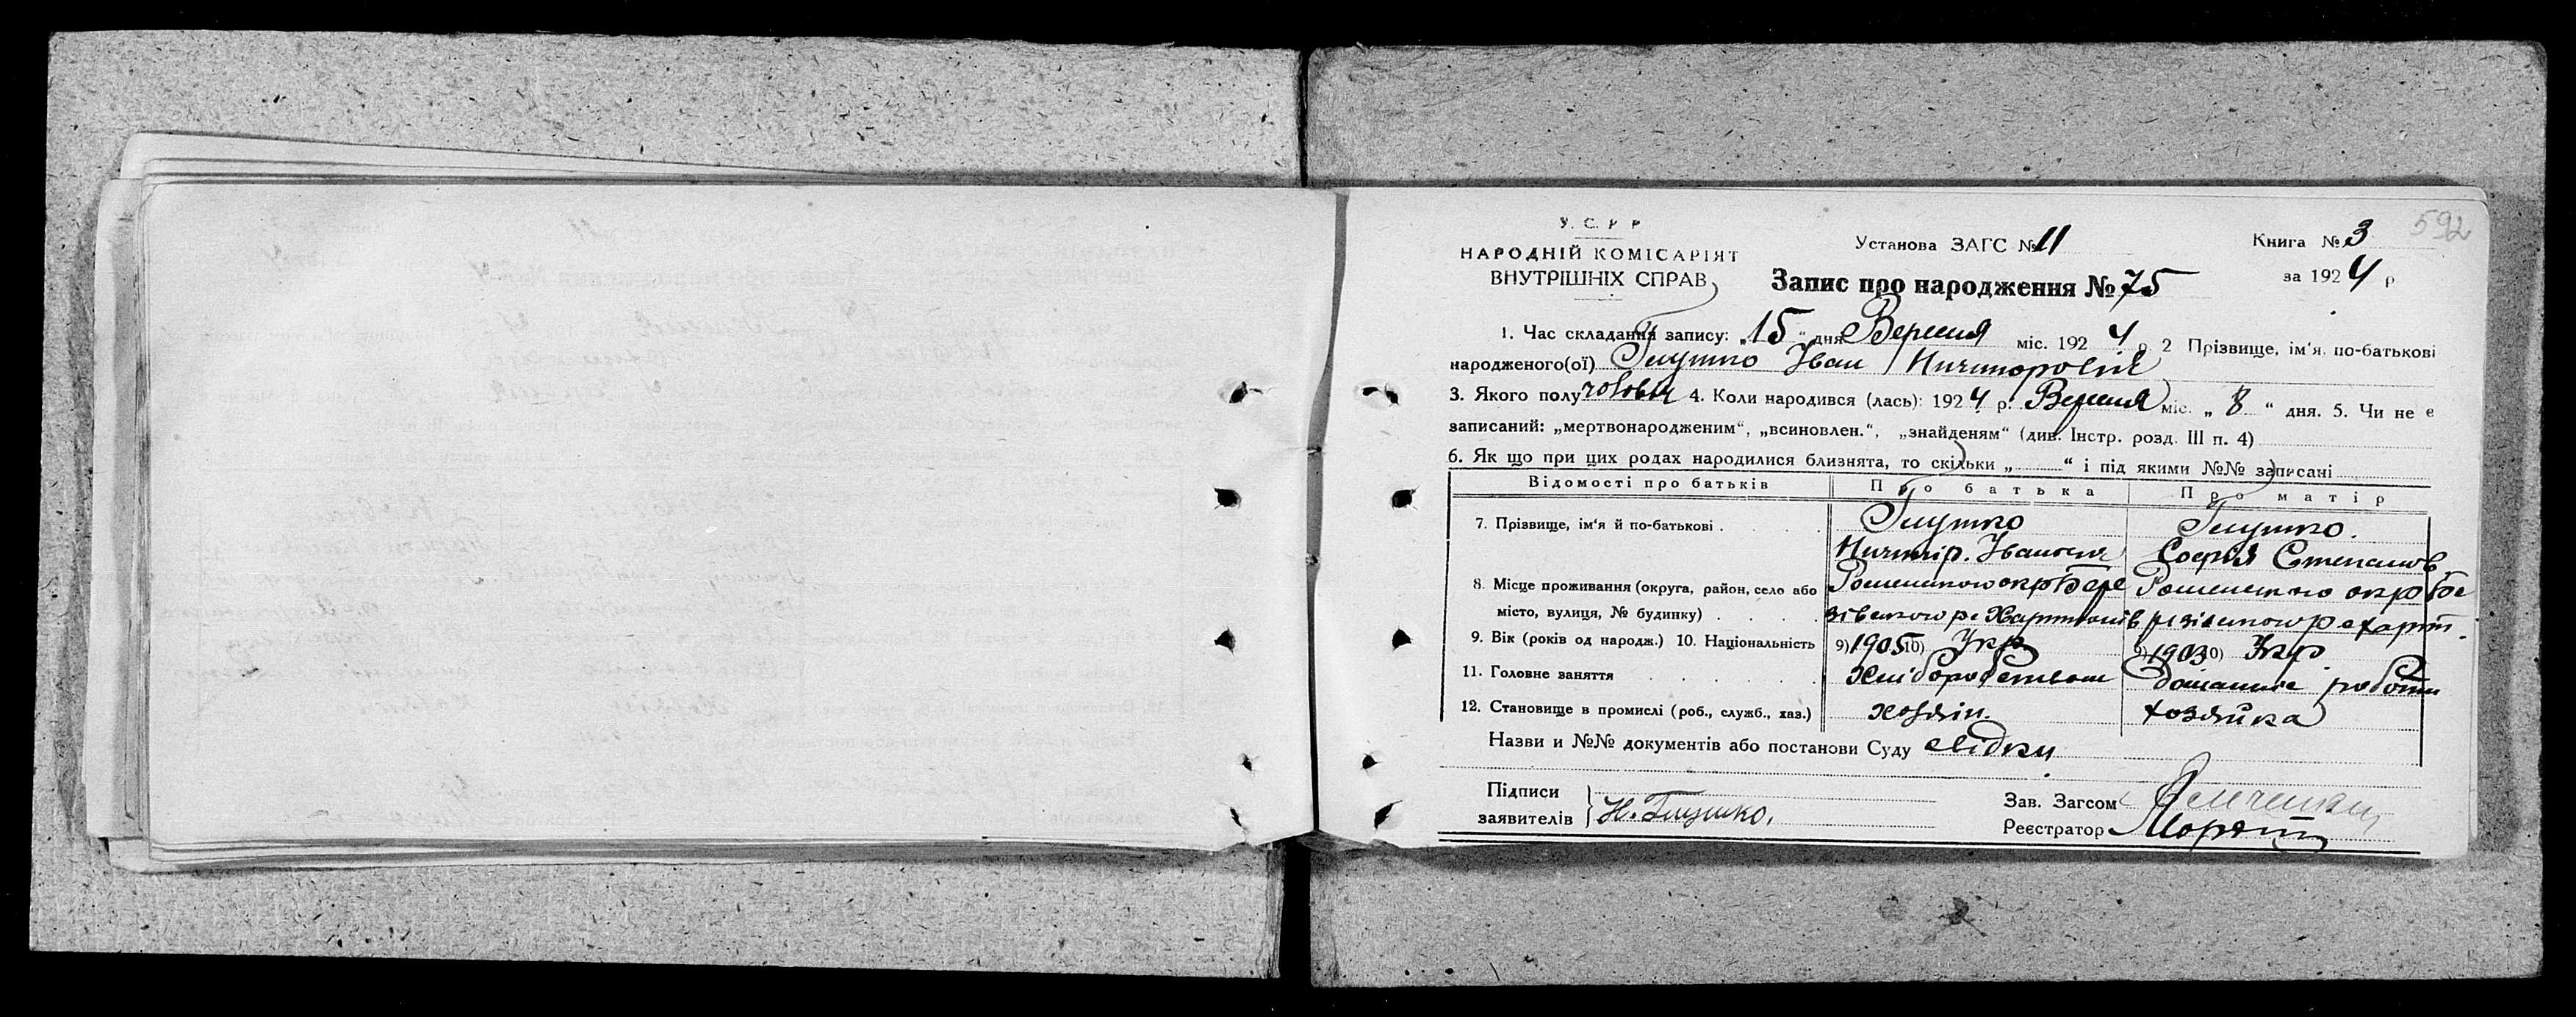 592
У. С. Р Р
НАРОДНІЙ КОМІСАРІЯТ
ВНУТРІШНІХ СПРАВ
Установа ЗАГС № 11
Книга № 3
за 1924 р
Запис про народження № 75
1. Час складання запису: „15“ дня Вересня міс. 1924 р 2 Прізвище, ім'я, по-батькові
народженого(ої) Глушко Іван Ничипорович
3. Якого полу чоловіч 4. Коли народився (лась): 1924 р. Вересня міс. „8“ дня. 5. Чи не є
записаний: „мертвонародженим“, „всиновлен.“, „знайденям“ (див. Інстр. розд. III п. 4)
6. Як що при цих родах народилися близнята, то скільки „ “ і під якими №№ записані
Відомості про батьків Про батька Про матір
7. Прізвище, ім'я й по-батькові Глушко Глушко.
Ничипір. Іванович Софія Степанов.
8. Місце проживання (округа, район, село або Роменского окр Бере Роменского окр Бе
місто, вулиця, № будинку) зівского р
9. Вік (років од народж.) 10. Національність 9) 1905 10) Укр 9) 1903 10) Укр
11. Головне заняття Хліборобством домашне роботи
12. Становище в промислі (роб., служб., хаз.) хозяін. хозяйка
Назви и №№ документів або постанови Суду свідки
Підписи
заявителів Н. Глушко.
Зав. Загсом
Реєстратор